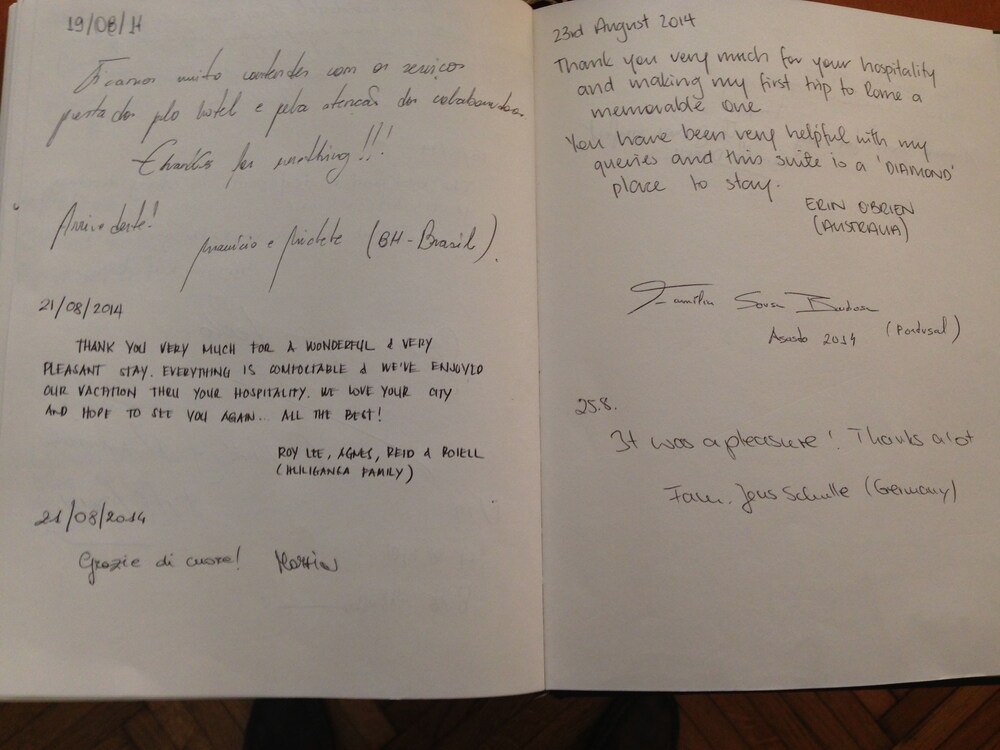 19/08/14
Ficamos muito contentes com os serviços
prestados pelo hotel e pela atenção dos colaboradores.
Thanks for everthing!!!
Arrivederte!
Maurício e (BH-Brasil).
21/08/2014
THANK YOU VERY MUCH FOR A WONDERFUL & VERY
PLEASANT STAY. EVERYTHING IS COMFORTABLE & WE'VE ENJOYED
OUR VACATION THRU YOUR HOSPITALITY. WE LOVE YOUR CITY
AND HOPE TO SEE YOU AGAIN... ALL THE BEST!
ROY LEE, AGNES, REID &
(HULIGANGA FAMILY)
21/08/2014
Grazie di cuore!
23rd August 2014
Thank you very much for your hospitality
and making my first trip to Rome a
memorable one
You have been very helpful with my
queries and this suite is a 'DIAMOND'
place to stay.
ERIN O'BRIEN
(AUSTRALIA)
Família Sousa
Agosto 2014 (Portugal)
25.8.
It was a pleasure! Thanks a lot
Fam. Jens Schulle (Germany)